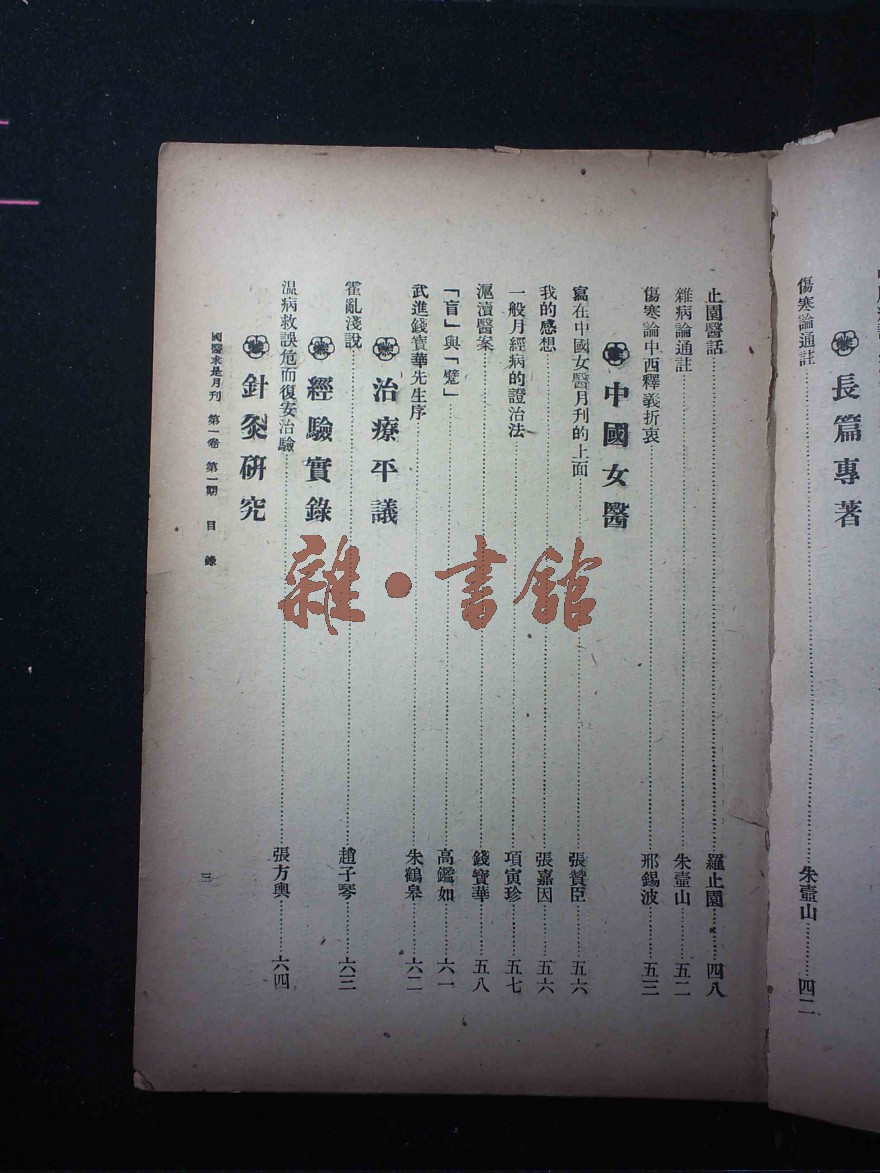 長篇專著
傷寒論通註……朱壺山……四二
止園醫話……羅止園……四八
雜病論通註……朱壺山……五二
傷寒論中西釋義折衷……邢錫波……五三
中國女醫
寫在中國女醫月刊的上面……張贊臣……五六
我的感想……張嘉因……五六
一般月經病的證治法……項寅珍……五七
滬瀆醫案……錢寶華……五八
「盲」與「躄」……高鑑如……六一
武進錢寶華先生序……朱鶴皋……六二
治療平議
霍亂淺說……趙子琴……六三
經驗實錄
温病救誤危而復安治驗……張方輿……六四
針灸研究
國醫求是月刊 第一卷 第一期 目錄
三
雜·書館